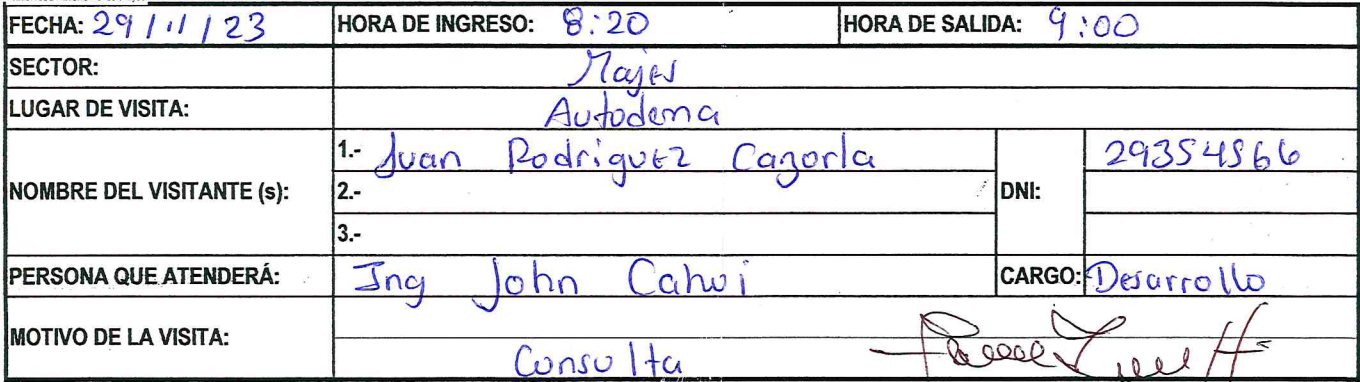 FECHA: 29 / 11 / 23 HORA DE INGRESO: 8:20 HORA DE SALIDA: 9:00
SECTOR: Majes
LUGAR DE VISITA: Autodema
NOMBRE DEL VISITANTE (s): 1.- Juan Rodriguez Cazorla DNI: 29354566
2.-
3.-
PERSONA QUE ATENDERÁ: Ing John Cahui CARGO: Desarrollo
MOTIVO DE LA VISITA: Consulta